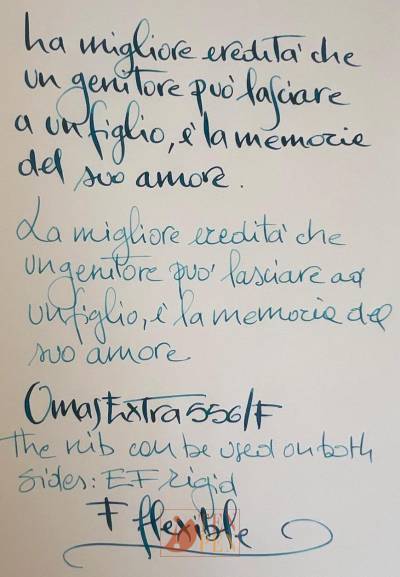 La migliore eredità che
un genitore può lasciare
a un figlio, è la memoria
del suo amore.
La migliore eredità che
un genitore può lasciare ad
un figlio, è la memoria del
suo amore
Omas Extra 556/F
The nib can be used on both
sides: EF rigid
F flexible